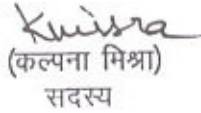 Kmisra
(कल्पना मिश्रा)
सदस्य